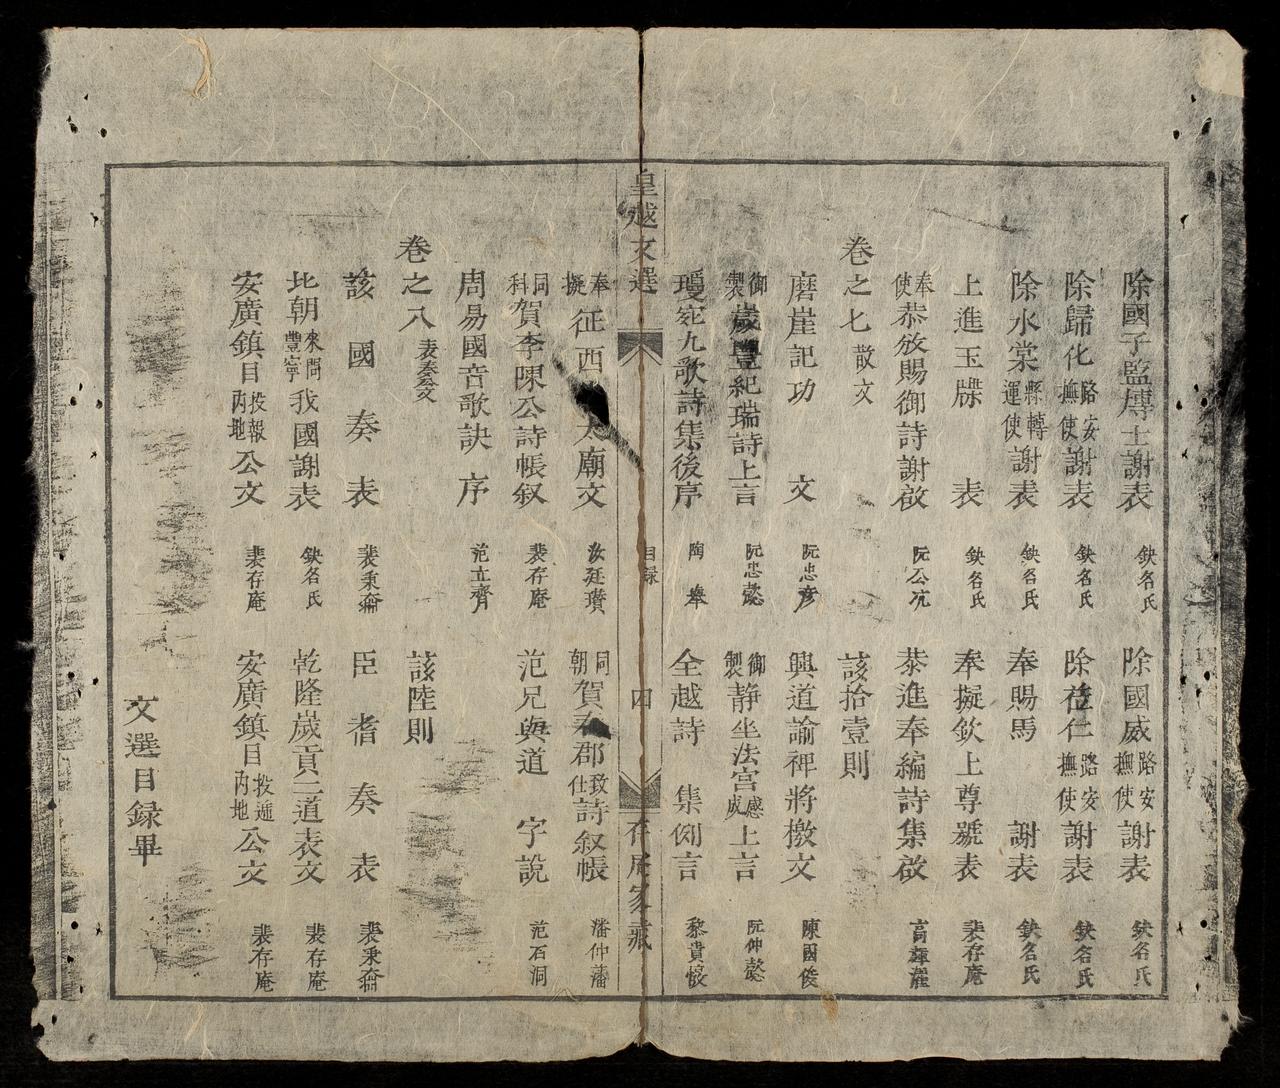 除國子監博士謝表 缺名氏 除國威路安撫使謝表 缺名氏
除歸化路安撫使謝表 缺名氏 除莅仁路安撫使謝表 缺名氏
除水棠縣轉運使謝表 缺名氏 奉賜馬謝表 缺名氏
上進玉牒表 缺名氏 奉擬欽上尊號表 裴存庵
奉使恭放賜御詩謝啟 阮公沆 恭進奉編詩集啟
卷之七 散文 該拾壹則
磨崖記功文 阮忠彥 興道諭裨將檄文 陳國俊
御製歲豐紀瑞詩上言 阮忠懿 御製靜坐法宮感成上言 阮仲懿
瓊宛九歌詩集後序 陶舉 全越詩集例言 黎貴惇
皇越文選 目錄 四 存庵家藏
奉擬征西 太廟文 汝廷瓚 同朝賀 郡致仕詩叙帳 潘仲藩
同科賀李陳公詩帳叙 裴存庵 范兄與道字說 范石洞
周易國音歌訣序 范立齋
卷之八 表奏公文 該陸則
該國奏表 裴秉 臣耆奏表 裴秉
北朝來問豐寧我國謝表 缺名氏 乾隆歲貢二道表文 裴存庵
安廣鎮目投報內地公文 裴存庵 安廣鎮目投遞內地公文 裴存庵
文選目錄畢